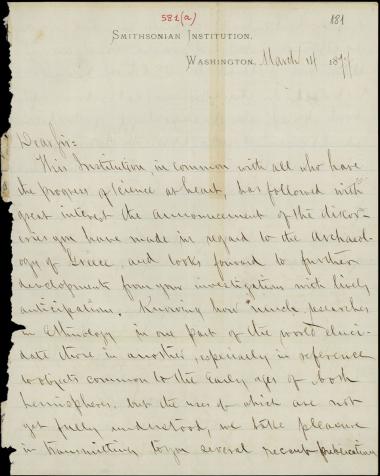 581(a)
181
SMITHSONIAN INSTITUTION.
WASHINGTON, March 14 1877
Dear Sir:
This Institution, in common with all who have
the progress of science at heart, has followed with
great interest the announcement of the discov-
eries you have made in regard to the Archaeol-
ogy of Greece, and looks forward to further
development from your investigations with lively
anticipations. Knowing how much researches
in Ethnology in one part of the world eluci-
date those in another, especially in reference
to objects common to the early ages of both
hemispheres, but the uses of which are not
yet fully understood, we take pleasure
in transmitting to you several recent publications